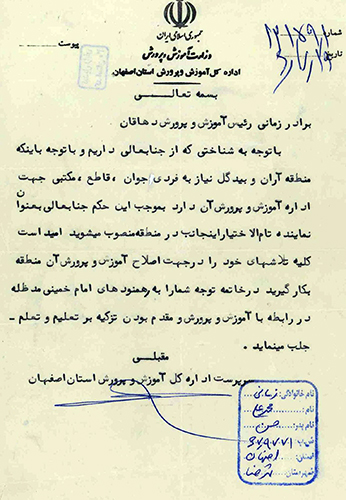 جمهوری اسلامی ایران
وزارت آموزش و پرورش
اداره کل آموزش و پرورش استان اصفهان
شماره
تاریخ
پیوست
بسمه تعالی
برادر زمانی رئیس آموزش و پرورش دهاقان
با توجه به شناختی که از جنابعالی داریم و با توجه باینکه
منطقه آران و بیدگل نیاز به فردی جوان ، قاطع ، مکتبی جهت
اداره آموزش و پرورش آن دارد بموجب این حکم جنابعالی بعنوان
نماینده تام الاختیار اینجانب در منطقه منصوب میشوید امید است
کلیه تلاشهای خود را در جهت اصلاح آموزش و پرورش آن منطقه
بکار گیرید در خاتمه توجه شما را به رهنمودهای امام خمینی مدظله
در رابطه با آموزش و پرورش و مقدم بودن تزکیه بر تعلیم و تعلم -
جلب مینماید .
مقبلی
سرپرست اداره کل آموزش و پرورش استان اصفهان
نام خانوادگی: زمانی
نام:
نام پدر: حسن
ش.ب:
شهرستان: شهرضا